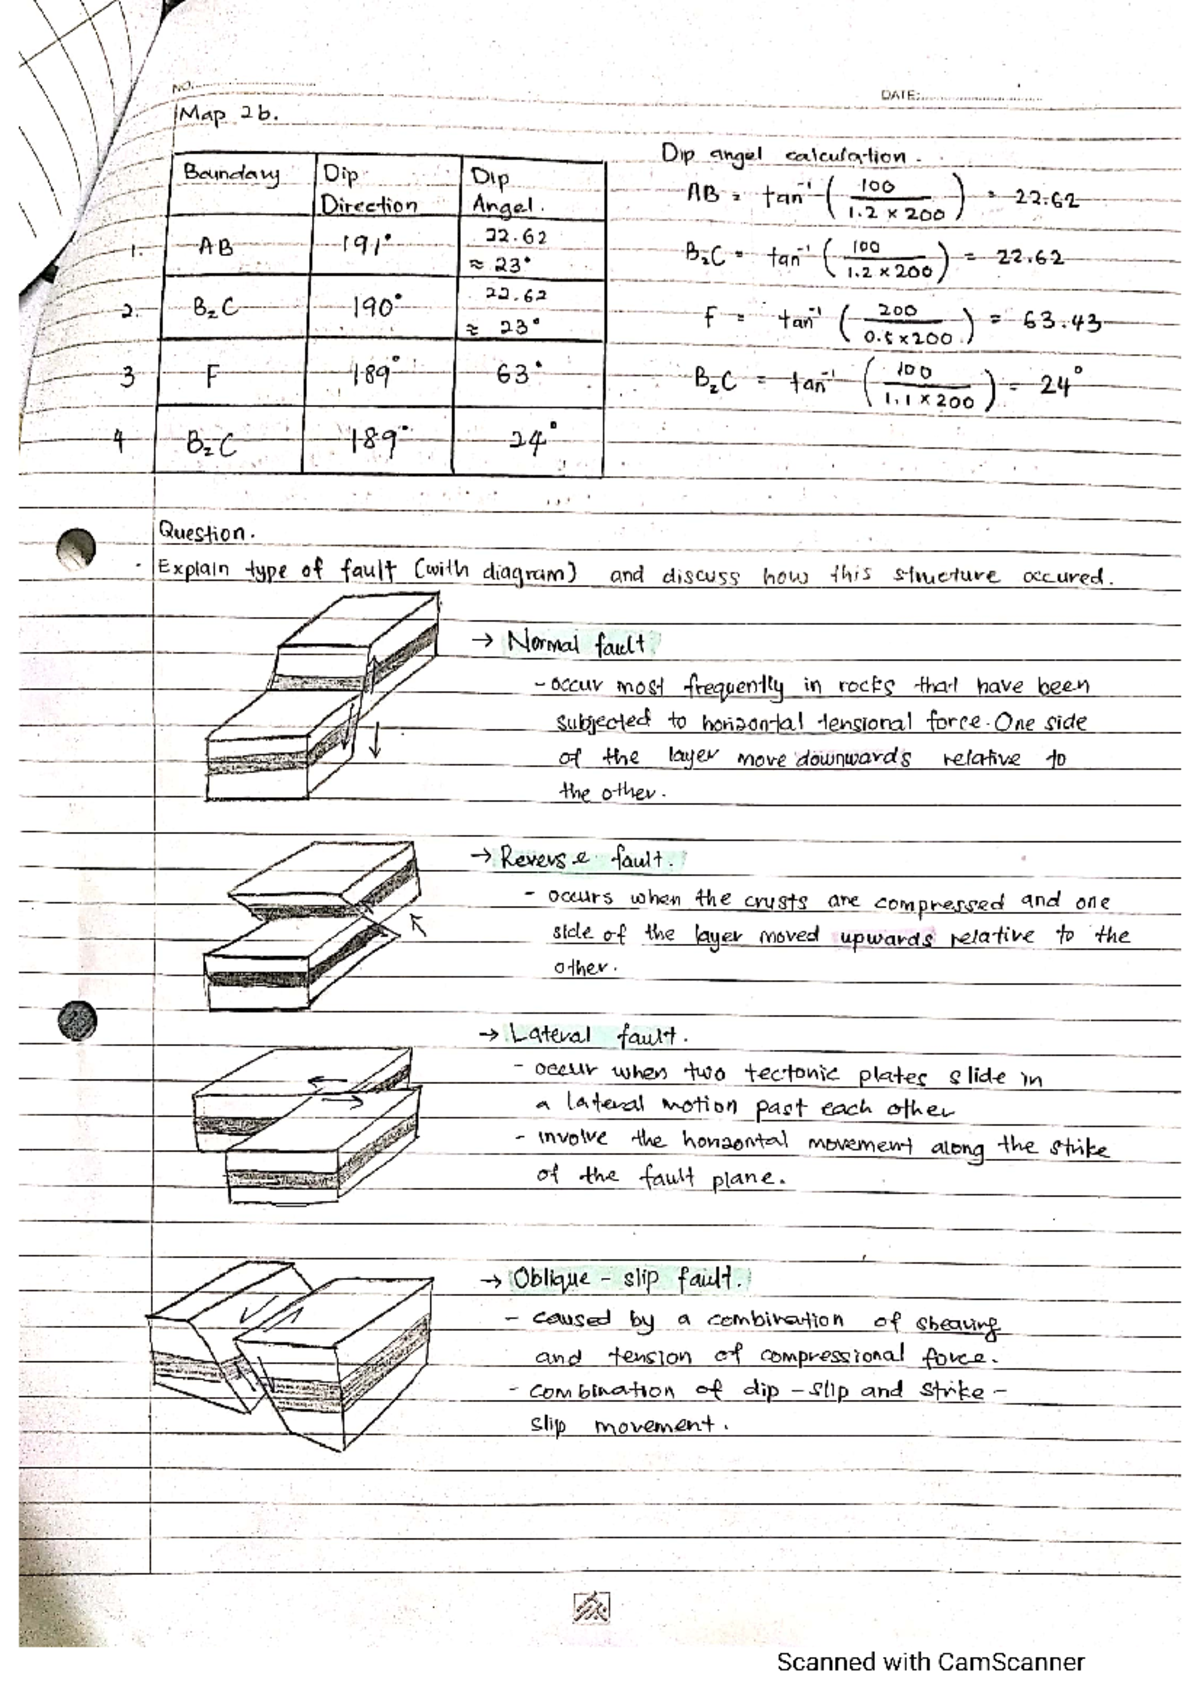 NO.
DATE:
Map 2b.
Boundary Dip Direction Dip Angel.
1. AB 191° 22.62 ≈ 23°
2. B₂C 190° 22.62 ≈ 23°
3 F 189° 63°
4 B₂C 189° 24°
Dip angel calculation.
AB = tan⁻¹ (100 / 1.2 × 200) = 22.62
B₂C = tan⁻¹ (100 / 1.2 × 200) = 22.62
F = tan⁻¹ (200 / 0.5 × 200) = 63.43
B₂C = tan⁻¹ (100 / 1.1 × 200) = 24°
Question.
· Explain type of fault (with diagram) and discuss how this structure occured.
→ Normal fault
- occur most frequently in rocks that have been
subjected to horizontal tensional force. One side
of the layer move downwards relative to
the other.
→ Reverse fault.
- occurs when the crusts are compressed and one
side of the layer moved upwards relative to the
other.
→ Lateral fault.
- occur when two tectonic plates slide in
a lateral motion past each other
- involve the horizontal movement along the strike
of the fault plane.
→ Oblique - slip fault.
- caused by a combination of shearing
and tension of compressional force.
- combination of dip - slip and strike -
slip movement.
Scanned with CamScanner